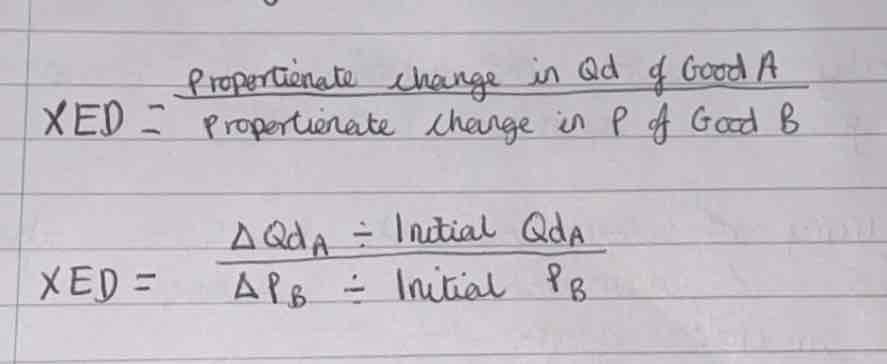 Proportionate change in Qd of Good A
XED = Proportionate change in P of Good B
ΔQdA ÷ Initial QdA
XED = ΔPB ÷ Initial PB